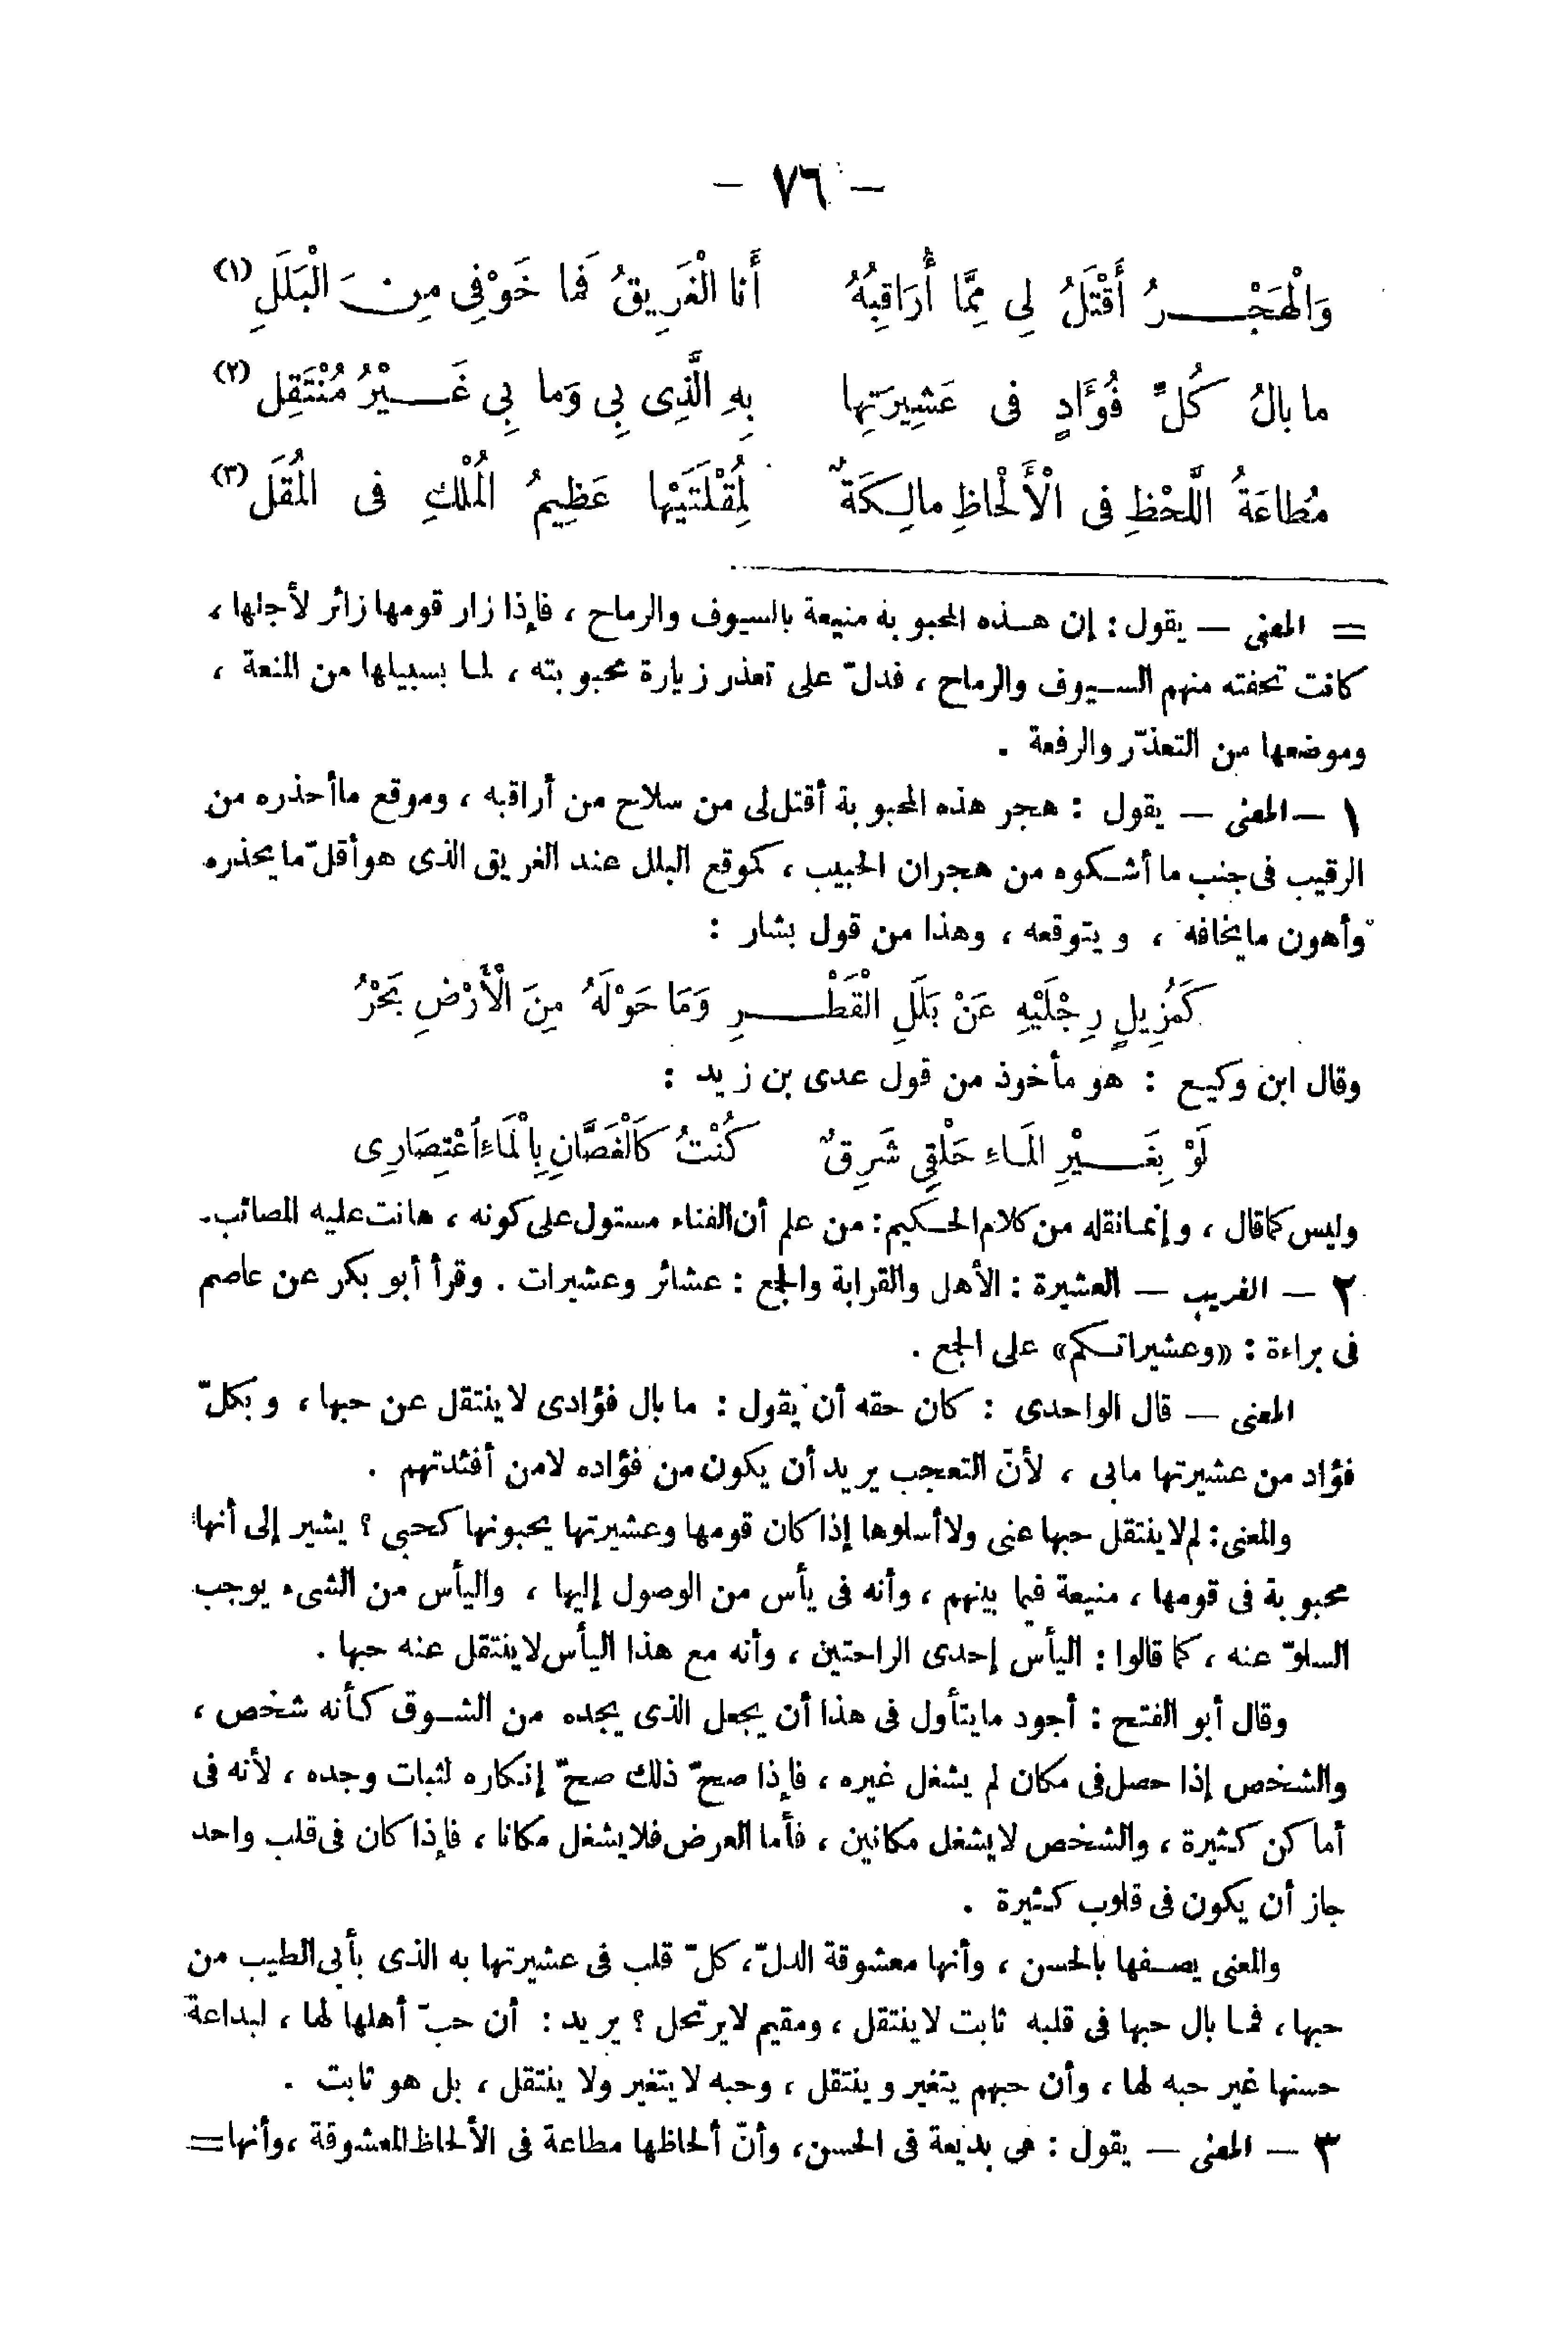 — ٧٦ —
وَالْهَجْرُ أَقْتَلُ لِى مِمَّا أُرَاقِبُهُ أَنَا الْغَرِيقُ فَما خَوْفِى مِنَ الْبَلَلِ (١)
ما بالُ كُلِّ فُؤَادٍ فى عَشِيرَتِها بِهِ الَّذِى بِى وَما بِى غَيْرُ مُنْتَقِلِ (٢)
مُطاعَةُ اللَّحْظِ فى الْأَلْحاظِ مالِكَةٌ لِمُقْلَتَيْها عَظِيمُ الْمُلْكِ فى الْمُقَلِ (٣)
= المعنى — يقول : إن هذه المحبوبة منيعة بالسيوف والرماح ، فإذا زار قومها زائر لأجلها ،
كانت تحفته منهم السيوف والرماح ، فدلّ على تعذر زيارة محبوبته ، لما بسبيلها من المنعة ،
وموضعها من التعذّر والرفعة .
١ — المعنى — يقول : هجر هذه المحبوبة أقتل لى من سلاح من أراقبه ، وموقع ما أحذره من
الرقيب فى جنب ما أشكوه من هجران الحبيب ، كموقع البلل عند الغريق الذى هو أقلّ ما يحذره
وأهون ما يخافه ، ويتوقعه ، وهذا من قول بشار :
كَمُزِيلٍ رِجْلَيْهِ عَنْ بَلَلِ الْقَطْرِ وَمَا حَوْلَهُ مِنَ الْأَرْضِ بَحْرُ
وقال ابن وكيع : هو مأخوذ من قول عدى بن زيد :
لَوْ بِغَيْرِ الْمَاءِ حَلْقِى شَرِقٌ كُنْتُ كَالْغَصَّانِ بِالْمَاءِ اُعْتِصَارِى
وليس كما قال ، وإنما نقله من كلام الحكيم : من علم أن الفناء مستول على كونه ، هانت عليه المصائب .
٢ — الغريب — العشيرة : الأهل والقرابة والجمع : عشائر وعشيرات . وقرأ أبو بكر عن عاصم
فى براءة : «وعشيراتكم» على الجمع .
المعنى — قال الواحدى : كان حقه أن يقول : ما بال فؤادى لا ينتقل عن حبها ، وبكلّ
فؤاد من عشيرتها مابى ، لأنّ التعجب يريد أن يكون من فؤاده لا من أفئدتهم .
والمعنى : لم لا ينتقل حبها عنى ولا أسلوها إذا كان قومها وعشيرتها يحبونها كحبى ؟ يشير إلى أنها
محبوبة فى قومها ، منيعة فيما بينهم ، وأنه فى يأس من الوصول إليها ، واليأس من الشىء يوجب
السلوّ عنه ، كما قالوا : اليأس إحدى الراحتين ، وأنه مع هذا اليأس لا ينتقل عنه حبها .
وقال أبو الفتح : أجود ما يتأول فى هذا أن يجعل الذى يجده من الشوق كأنه شخص ،
والشخص إذا حصل فى مكان لم يشغل غيره ، فإذا صحّ ذلك صحّ إنكاره لثبات وجده ، لأنه فى
أماكن كثيرة ، والشخص لا يشغل مكانين ، فأما العرض فلا يشغل مكانا ، فإذا كان فى قلب واحد
جاز أن يكون فى قلوب كثيرة .
والمعنى يصفها بالحسن ، وأنها معشوقة الدلّ ، كلّ قلب فى عشيرتها به الذى بأبى الطيب من
حبها ، فما بال حبها فى قلبه ثابت لا ينتقل ، ومقيم لا يرتحل ؟ يريد : أن حبّ أهلها لها ، لبداعة
حسنها غير حبه لها ، وأن حبهم يتغير وينتقل ، وحبه لا يتغير ولا ينتقل ، بل هو ثابت .
٣ — المعنى — يقول : هى بديعة فى الحسن ، وأنّ ألحاظها مطاعة فى الألحاظ المعشوقة ، وأنها =